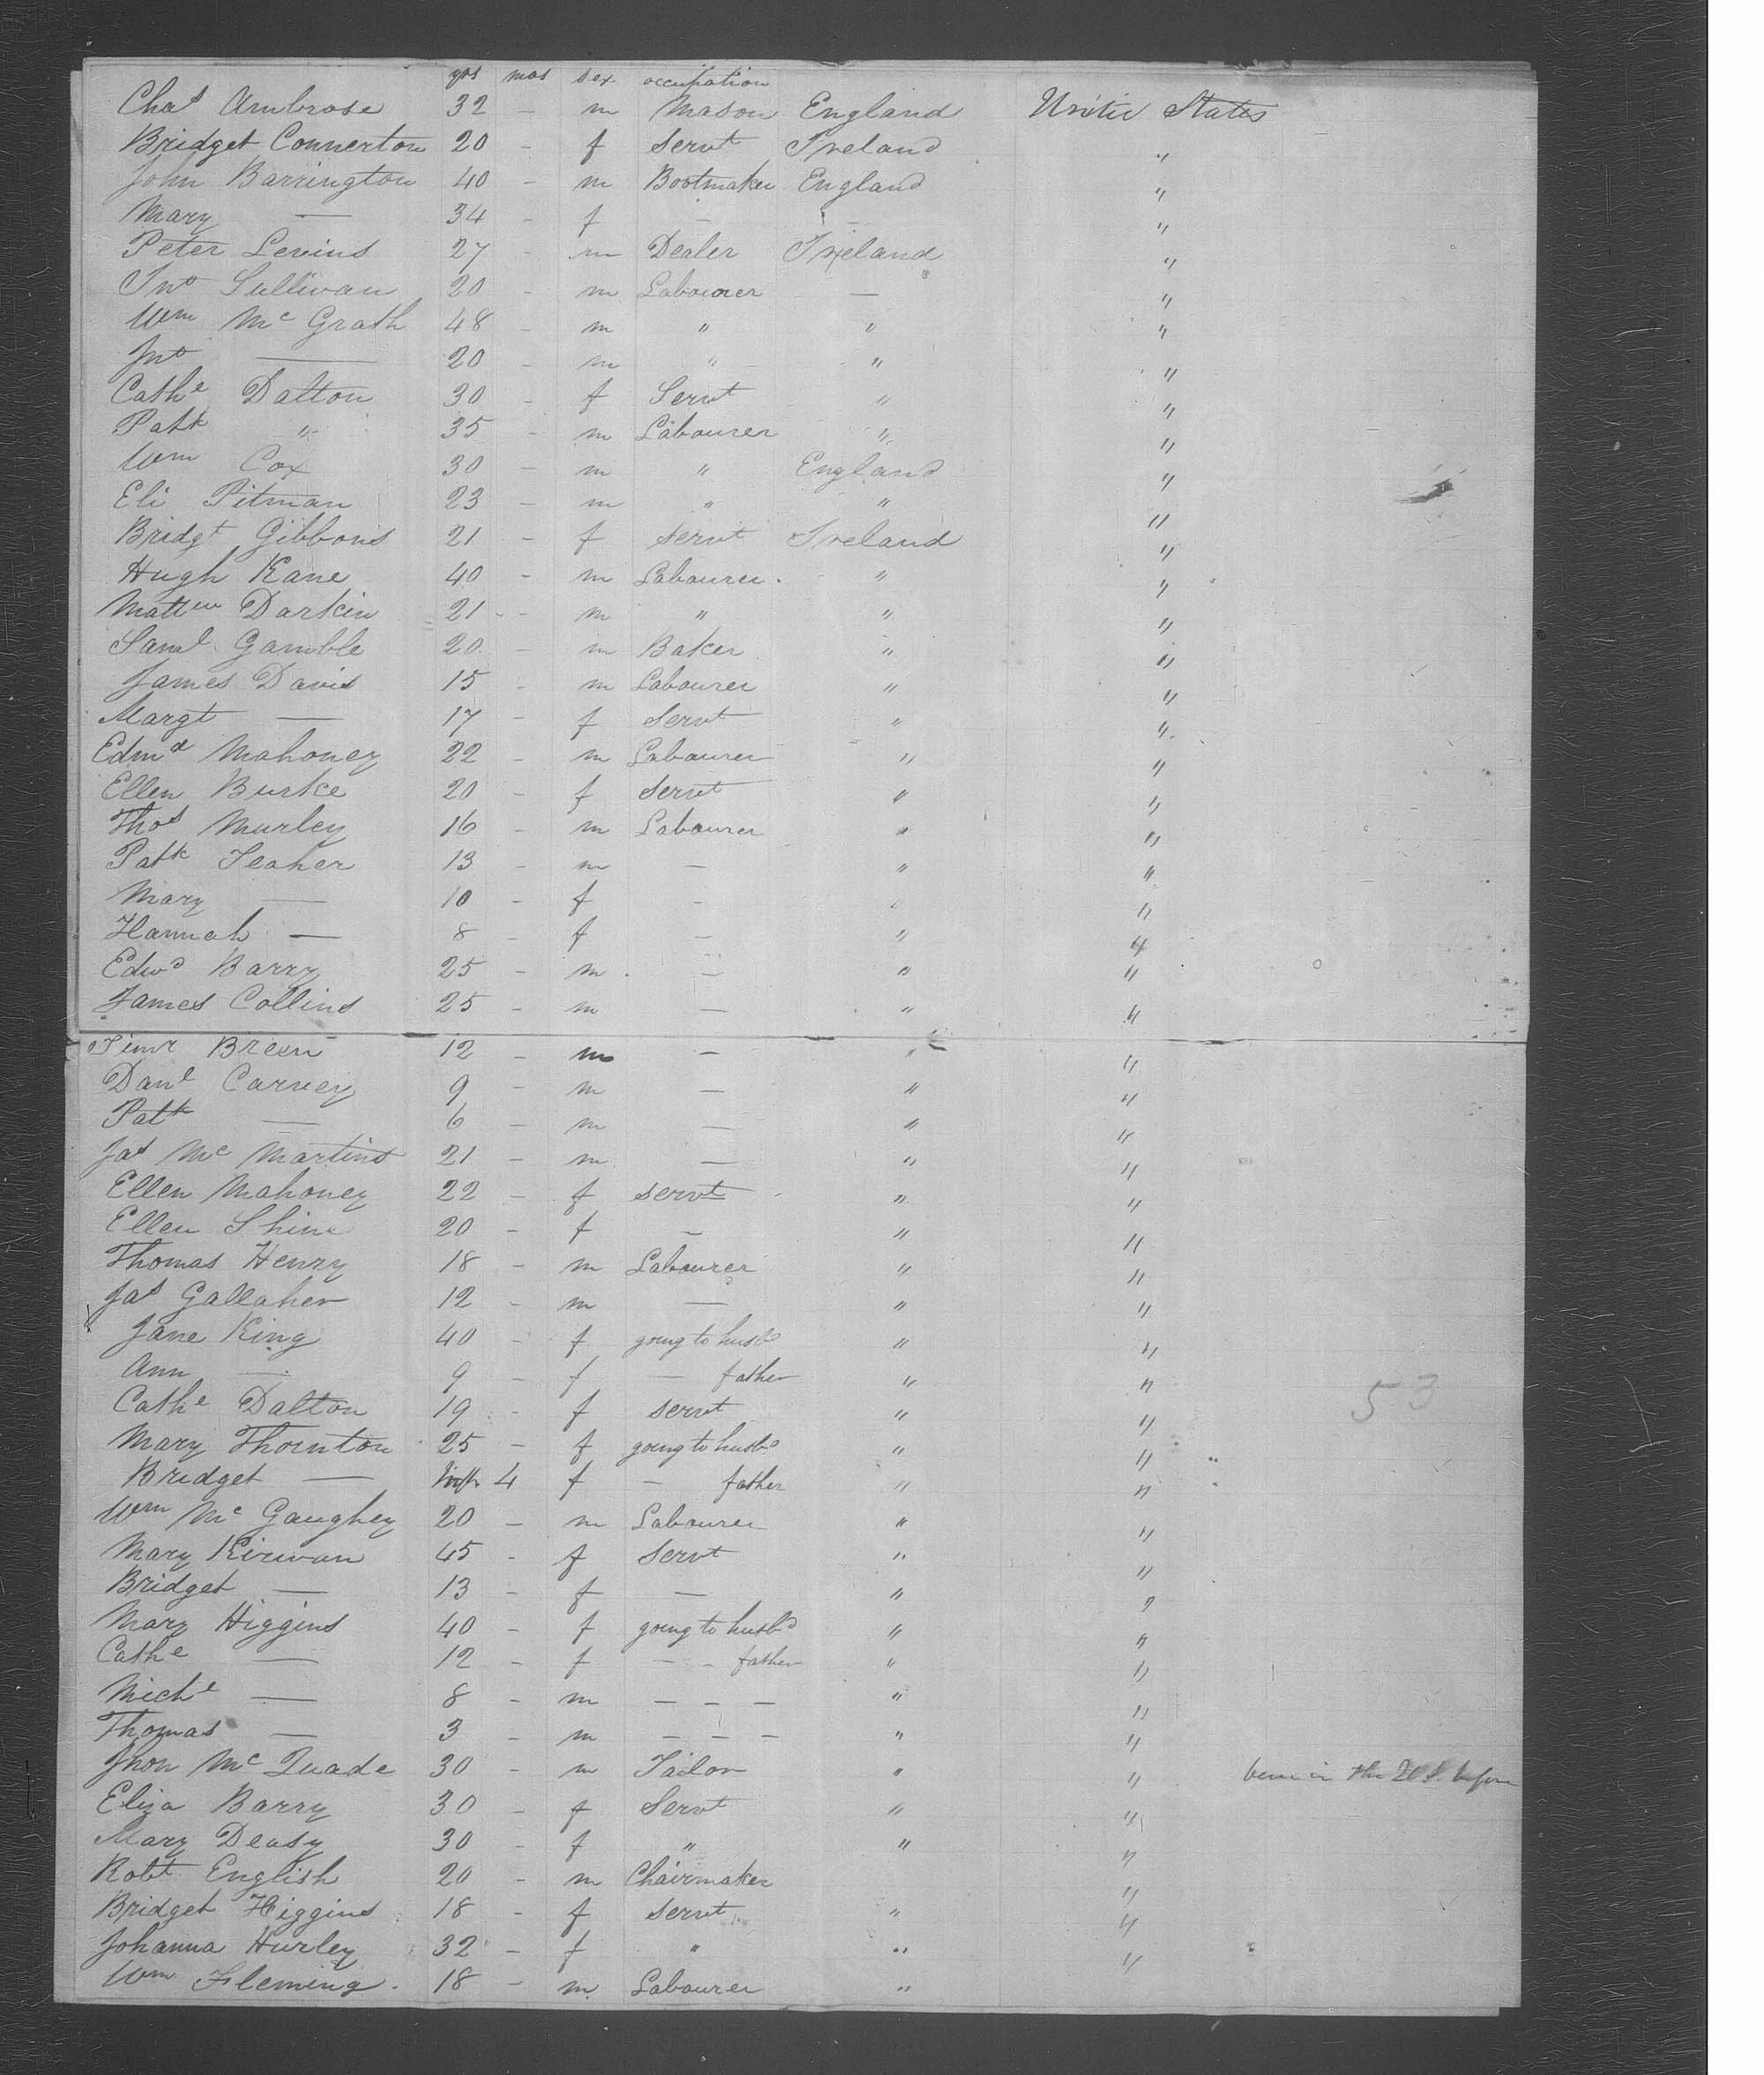 yrs mos sex occupation
Chas Ambrose 32 - m Mason England United States
Bridget Connerton 20 - f Servt Ireland "
John Barrington 40 - m Bootmaker England "
Mary — 34 - f — — "
Peter Levins 27 - m Dealer Ireland "
Jno Sullivan 20 - m Labourer — "
Wm Mc Grath 48 - m " " "
Jno — 20 - m " " "
Cathe Dalton 30 - f Servt " "
Patk " 35 - m Labourer " "
Wm Cox 30 - m " England "
Eli Pitman 23 - m " " "
Bridgt Gibbons 21 - f servt Ireland "
Hugh Kane 40 - m Labourer " "
Mattew Darkin 21 - m " " "
Saml Gamble 20 - m Baker " "
James Davis 15 - m Labourer " "
Margt — 17 - f Servt " "
Edmd Mahoney 22 - m Labourer " "
Ellen Burke 20 - f servt " "
Thos Murley 16 - m Labourer " "
Patk Teaher 13 - m — " "
Mary — 10 - f - " "
Hannah — 8 - f — " "
Edwd Barry 25 - m — " "
James Collins 25 - m — " "
Timr Breen 12 - m — " "
Danl Carney 9 - m — " "
Patk — 6 - m — " "
Jas Mc Martins 21 - m — " "
Ellen Mahoney 22 - f servt " "
Ellen Shine 20 - f — " "
Thomas Henry 18 - m Labourer " "
Jas Gallaher 12 - m — " "
Jane King 40 - f going to husbd " "
Ann — 9 - f — father " "
Cathe Dalton 19 - f servt " " 53
Mary Thornton 25 - f going to husbd " "
Bridget — Inft 4 f — father " "
Wm Mc Gaughey 20 - m Labourer " "
Mary Kirwan 45 - f Servt " "
Bridget — 13 - f — " "
Mary Higgins 40 - f going to husbd " "
Cathe — 12 - f — - father " "
Michl — 8 - m — — — " "
Thomas — 3 - m — — — " "
Jhon Mc Quade 30 - m Tailor " " been in the U.S. before
Eliza Barry 30 - f Servt " "
Mary Deasy 30 - f " " "
Robt English 20 - m Chairmaker "
Bridget Higgins 18 - f servt " "
Johanna Hurley 32 - f " " "
Wm Fleming 18 - m Labourer "